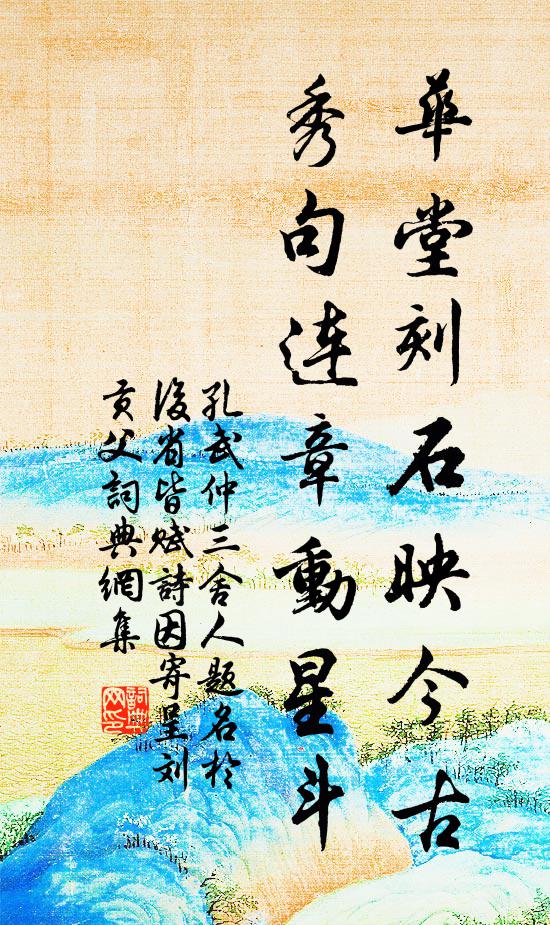 華堂刻石映今古
秀句連章動星斗
孔武仲三舍人題名於
後省皆賦詩因寄呈刘
貢父詞典網集